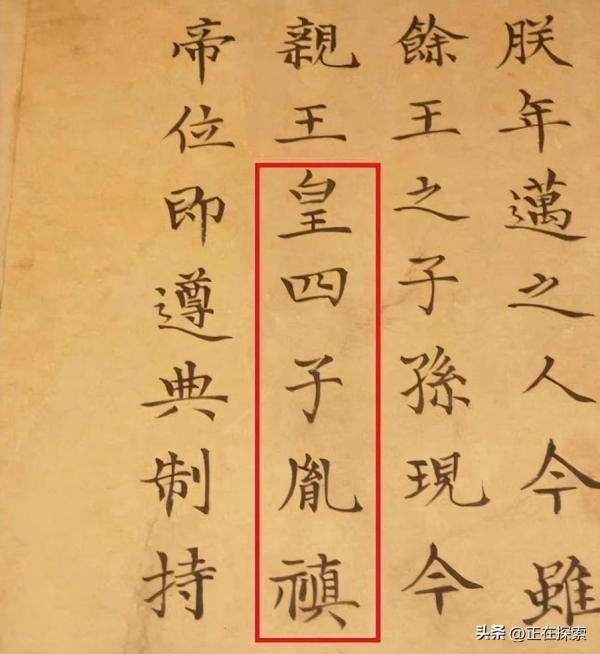 朕年邁之人今雖
餘王之子孫現今
親王皇四子胤禛
帝位即遵典制持
头条 @正在探索